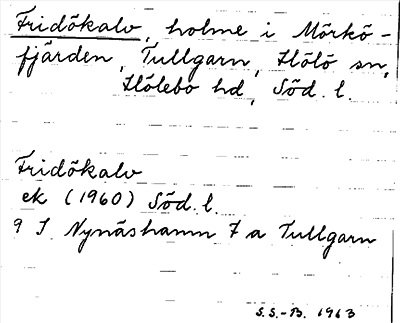 Fridökalv, holme i Mörkö-
fjärden, Tullgarn, Hölö sn,
Hölebo hd, Söd. l.
Fridökalv
ek (1960) Söd. l.
9 I Nynäshamn 7 a Tullgarn
S.S.-B. 1963